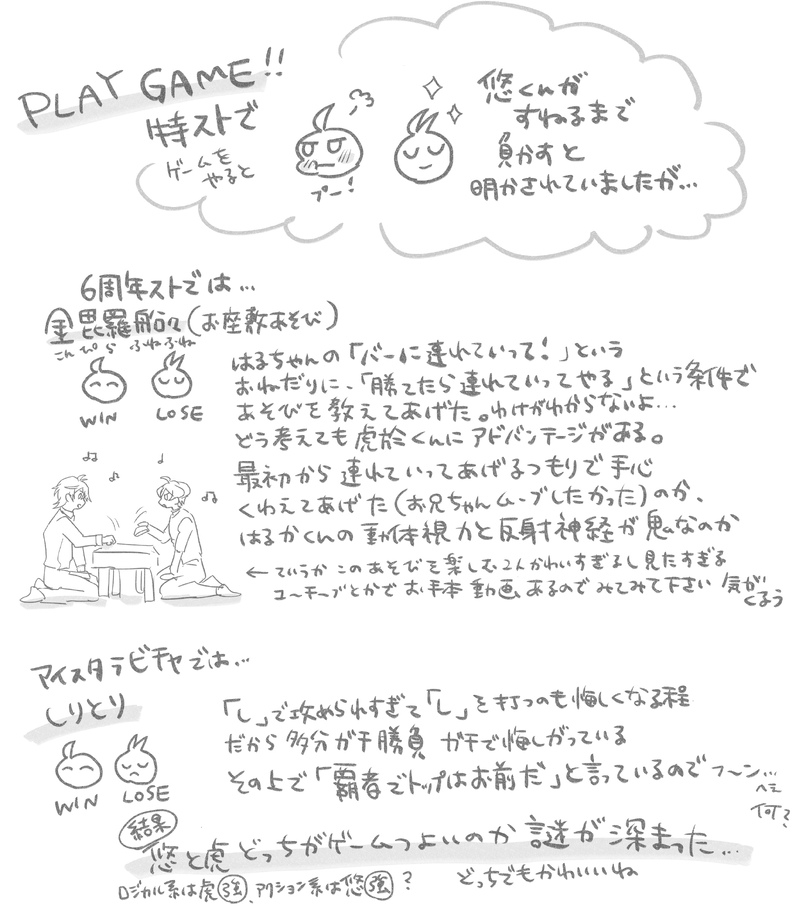 PLAY GAME!!
特ストで
ゲームを
やると
プー!
悠くんが
すねるまで
負かすと
明かされていましたが…
6周年ストでは…
金毘羅船々(お座敷あそび)
こんぴら ふねふね
WIN LOSE
はるちゃんの「バーに連れていって!」という
おねだりに、「勝てたら連れていってやる」という条件で
あそびを教えてあげた。わけがわからないよ…
どう考えても虎於くんにアドバンテージがある。
最初から連れていってあげるつもりで手心
くわえてあげた(お兄ちゃんムーブしたかった)のか、
はるかくんの動体視力と反射神経が鬼なのか
←ていうかこのあそびを楽しむ2人かわいすぎるし見たすぎる
ユーチューブとかでお手本動画あるのでみてみて下さい 気が
くるう
アイスタラビチャでは…
しりとり
WIN LOSE
「し」で攻められすぎて「し」を打つのも悔しくなる程
だから多分ガチ勝負 ガチで悔しがっている
その上で「覇者でトップはお前だ」と言っているのでフ〜ン…
へェ
何?
結果
悠と虎どっちがゲームつよいのか謎が深まった…
ロジカル系は虎強、アクション系は悠強?
どっちでもかわいいね